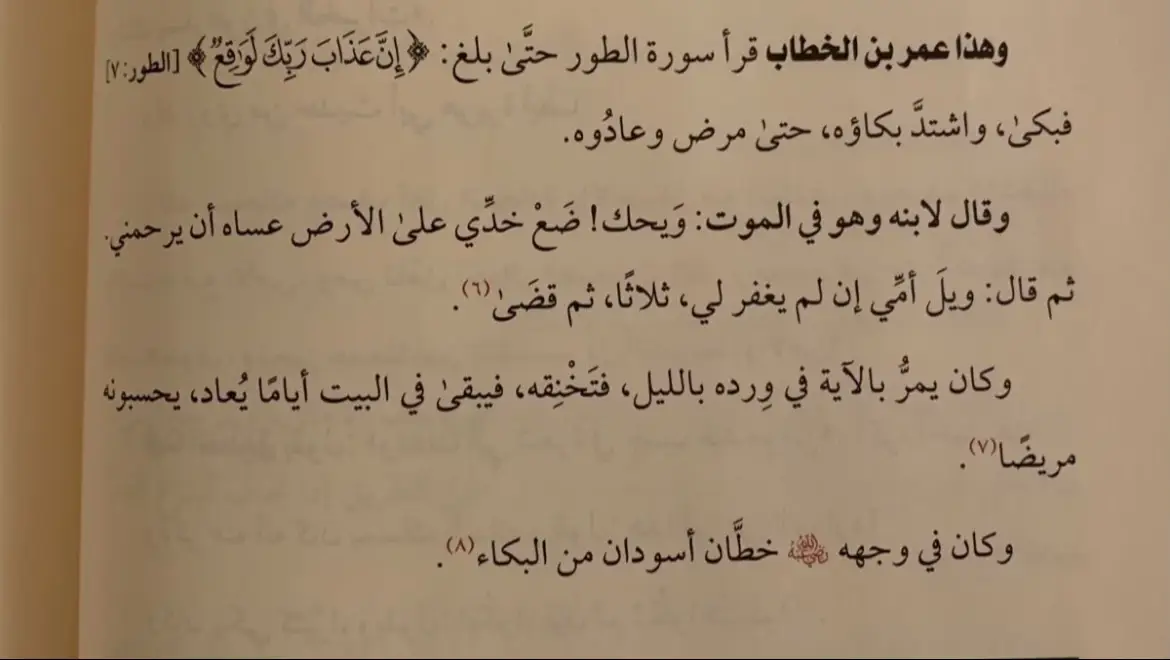 وهذا عمر بن الخطاب قرأ سورة الطور حتَّىٰ بلغ: ﴿إِنَّ عَذَابَ رَبِّكَ لَوَٰقِعٌ﴾ [الطور: ٧]
فبكىٰ، واشتدَّ بكاؤه، حتىٰ مرض وعادُوه.
وقال لابنه وهو في الموت: وَيحك! ضَعْ خدِّي علىٰ الأرض عساه أن يرحمني.
ثم قال: ويلَ أمِّي إن لم يغفر لي، ثلاثًا، ثم قضَىٰ(٦).
وكان يمرُّ بالآية في وِرده بالليل، فتَخْنِقه، فيبقىٰ في البيت أيامًا يُعاد، يحسبونه
مريضًا(٧).
وكان في وجهه رضي الله عنه خطَّان أسودان من البكاء(٨).